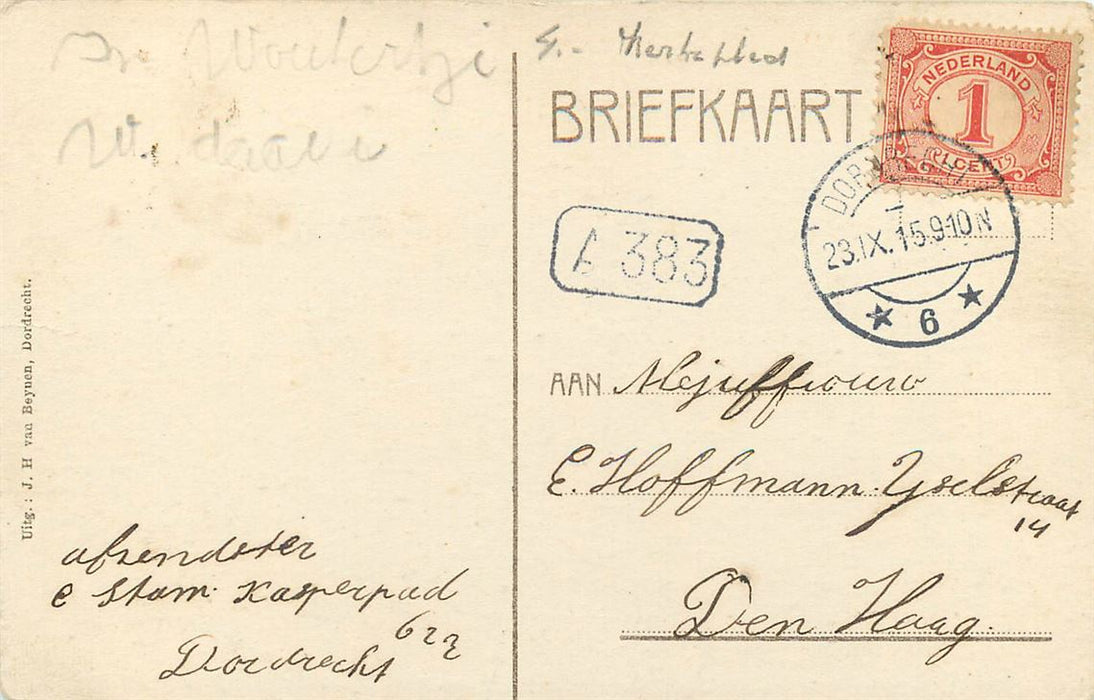 BRIEFKAART
NEDERLAND
1
1 CENT
DORDRECHT
23.IX.15.9-10N
6
A 383
AAN Mejuffrouw
E. Hoffmann. Yselstraat
14
Den Haag.
Uitg.: J. H van Beynen, Dordrecht.
afzendster
C Stam. Kasperpad
622
Dordrecht